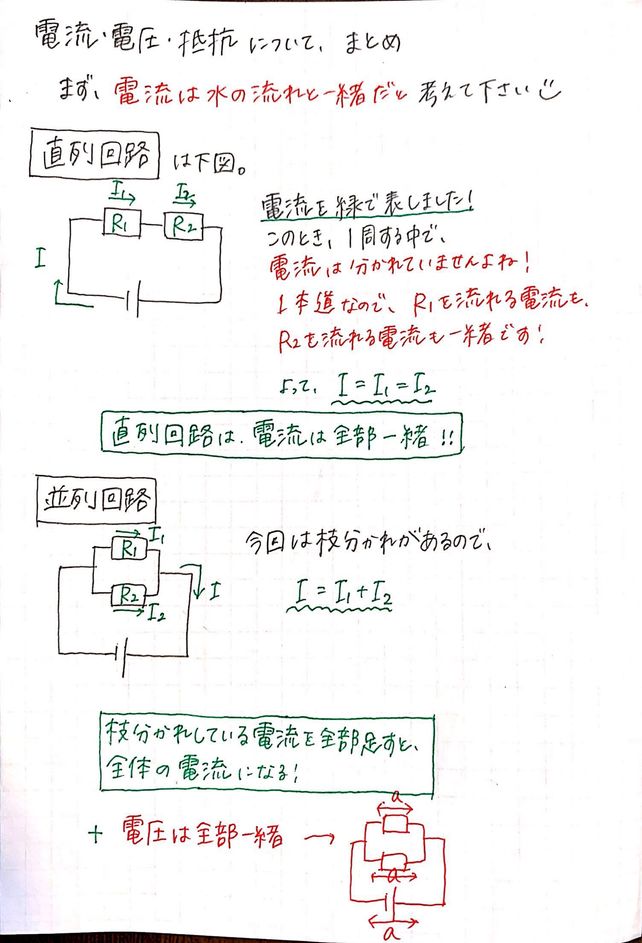 電流・電圧・抵抗について、まとめ
まず、電流は水の流れと一緒だと考えて下さい
直列回路 は下図。
I₁ I₂
R₁ R₂
I
電流を緑で表しました!
このとき、1周する中で、
電流は分かれていませんよね!
1本道なので、R₁を流れる電流も、
R₂を流れる電流も一緒です!
よって、I = I₁ = I₂
直列回路は、電流は全部一緒!!
並列回路
I₁
R₁
R₂
I₂
I
今回は枝分かれがあるので、
I = I₁ + I₂
枝分かれしている電流を全部足すと、
全体の電流になる!
+ 電圧は全部一緒 →
a
a
a